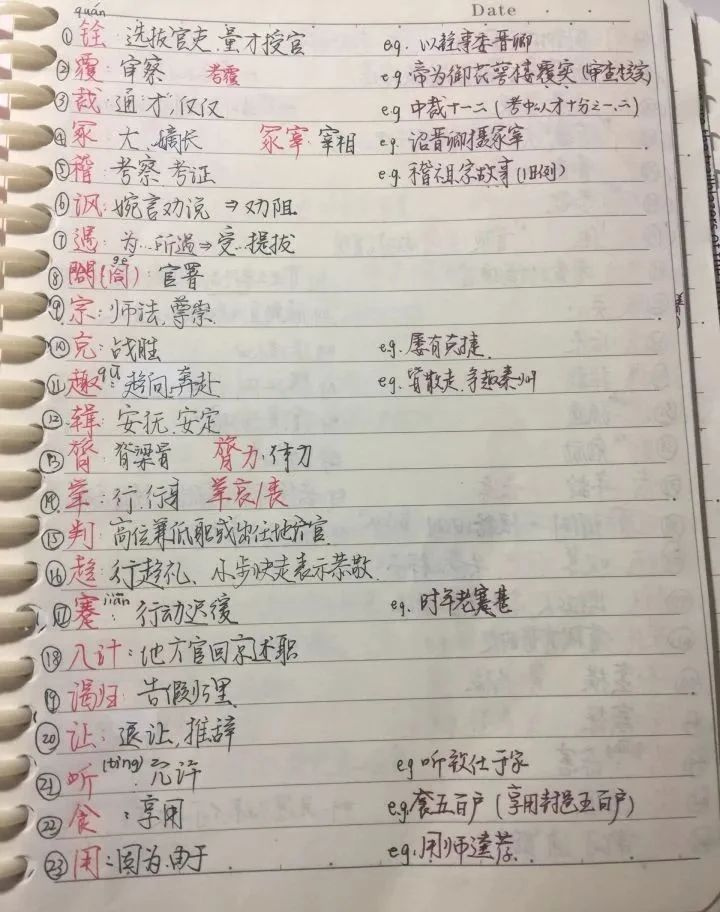 Date
quán
①铨: 选拔官吏,量才授官 eg. 以铨事委晋卿
②覆: 审察 考覆 eg. 帝为御花萼楼覆实(审查核实)
③裁: 通"才",仅仅 eg 中裁十一二(考中人才十分之一、二)
④冢: 大、嫡长 冢宰: 宰相 eg. 诏晋卿摄冢宰
⑤稽: 考察、考证 eg. 稽祖宗故事(旧例)
⑥讽: 婉言劝说 ⇒ 劝阻
⑦遇: 为…所遇 ⇒ 受…提拔
gé
⑧閤(阁): 官署
⑨宗: 师法,尊崇
⑩克: 战胜 eg. 屡有克捷
qū
⑪趣: 趋向,奔赴 eg. 皆散走,争趣秦州
⑫辑: 安抚,安定
⑬膂: 脊梁骨 膂力: 体力
⑭ : 行,行身
⑮判: 高位兼低职或出任地方官
⑯趋: 行趋礼、小步快走表示恭敬
jiǎn
⑰蹇: 行动迟缓 eg. 时年老蹇甚
⑱入计: 地方官回京述职
⑲谒归: 告假归里
⑳让: 退让,推辞
(tīng)
㉑听: 允许 eg 听致仕于家
㉒食: 享用 eg. 食五百户(享用封邑五百户)
㉓用: 因为,由于 eg. 用师逵荐